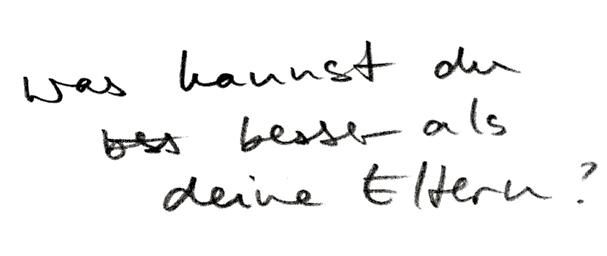 was kannst du
bess besser als
deine Eltern?